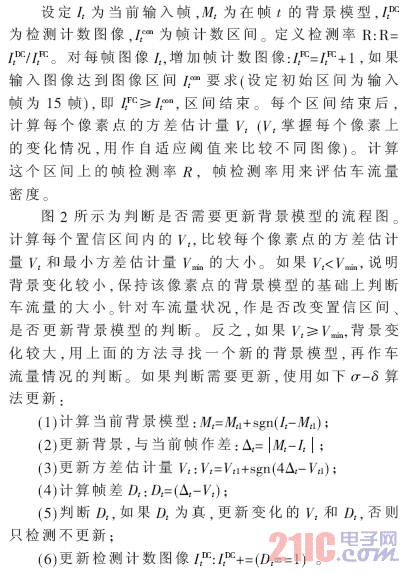 设定 It 为当前输入帧,Mt 为在帧 t 的背景模型,ItDC
为检测计数图像,Itcon 为帧计数区间。定义检测率 R:R=
ItDC/ItFC。对每帧图像 It,增加帧计数图像:ItFC=ItFC+1,如果
输入图像达到图像区间 Itcon 要求(设定初始区间为输入
帧为 15 帧),即 ItFC≥Itcon,区间结束。每个区间结束后,
计算每个像素点的方差估计量 Vt (Vt 掌握每个像素上
的变化情况,用作自适应阈值来比较不同图像)。计算
这个区间上的帧检测率 R, 帧检测率用来评估车流量
密度。
图 2 所示为判断是否需要更新背景模型的流程图。
计算每个置信区间内的 Vt,比较每个像素点的方差估计
量 Vt 和最小方差估计量 Vmin 的大小。如果 Vt<Vmin,说明
背景变化较小,保持该像素点的背景模型的基础上判断
车流量的大小。针对车流量状况,作是否改变置信区间、
是否更新背景模型的判断。反之,如果 Vt≥Vmin,背景变
化较大,用上面的方法寻找一个新的背景模型,再作车
流量情况的判断。如果判断需要更新,使用如下 σ-δ 算
法更新:
(1)计算当前背景模型:Mt=Mt1+sgn(It-Mt1);
(2)更新背景,与当前帧作差:Δt=|Mt-It|;
(3)更新方差估计量 Vt:Vt=Vt1+sgn(4Δt-Vt1);
(4)计算帧差 Dt:Dt=(Δt-Vt);
(5)判断 Dt,如果 Dt 为真,更新变化的 Vt 和 Dt,否则
只检测不更新;
(6)更新检测计数图像 ItDC:ItDC+=(Dt==1) 。
21IC电子网